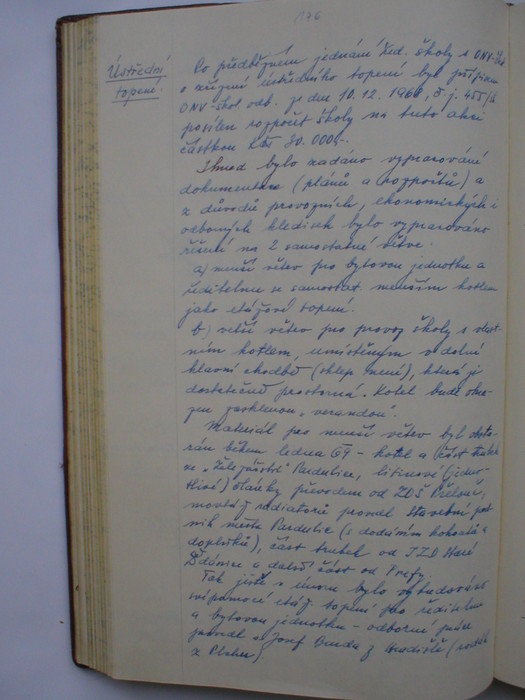 176
Ústřední
topení.
Po předběžném jednání řed. školy s ONV
o zřízení ústředního topení byl přípisem
ONV-škol. odb. ze dne 10.12.1968, č.j. 455/
posílen rozpočet školy na tuto akci
částkou Kčs 30.000,-.
Ihned bylo zadáno vypracování
dokumentace (plánů a rozpočtů) a
z důvodů provozních, ekonomických i
odborných hledisek bylo vypracováno
řešení na 2 samostatné větve.
a) menší větev pro bytovou jednotku a
ředitelnu se samostat. menším kotlem
jako etážové topení.
b) větší větev pro provoz školy s vlast-
ním kotlem, umístěným v dolní
hlavní chodbě (sklep není), která je
dostatečně prostorná. Kotel bude obe-
zen zasklenou "verandou".
Materiál pro menší větev byl obsta-
rán během ledna 69 - kotel a část trubek
ze "Železářství" Pardubice, litinové (jedno-
tlivé) články převodem od ZDŠ
montáž radiatorů provedl Stavební pod-
nik města Pardubic (s dodáním kohoutů a
doplňků), část trubek od JZD Staré
Ždánice a další část od Prefy.
Tak ještě v únoru bylo vybudováno
svépomocí etáž. topení pro ředitelnu
a bytovou jednotku - odborné práce
provedl s. Josef z Hradiště (
z